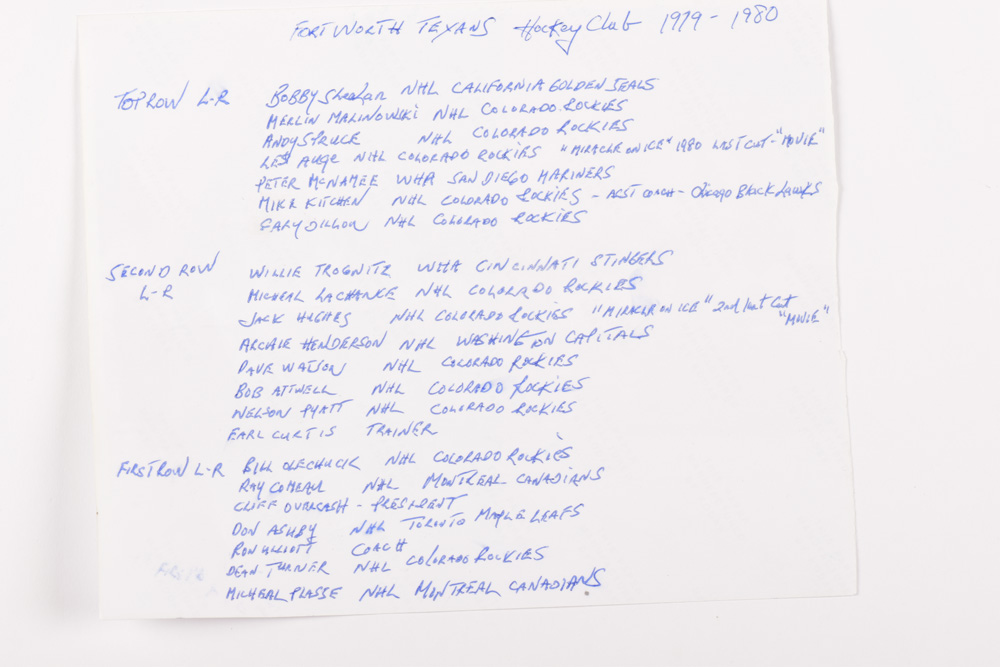 FORT WORTH TEXANS Hockey Club 1979 - 1980
TOP ROW L-R BOBBY Sheehan NHL CALIFORNIA GOLDEN SEALS
MERLIN MALINOWSKI NHL COLORADO ROCKIES
ANDY SPRUCE NHL COLORADO ROCKIES
LES AUGE NHL COLORADO ROCKIES "MIRACLE ON ICE" 1980 LAST CUT - "MOVIE"
PETER McNAMEE WHA SAN DIEGO MARINERS
MIKE KITCHEN NHL COLORADO ROCKIES - ASST COACH - Chicago Black Hawks
GARY DILLON NHL COLORADO ROCKIES
SECOND ROW L-R WILLIE TROGNITZ WHA CINCINNATI STINGERS
MICHEAL LACHANCE NHL COLORADO ROCKIES
JACK HUGHES NHL COLORADO ROCKIES "MIRACLE ON ICE" 2nd last Cut "MOVIE"
ARCHIE HENDERSON NHL WASHINGTON CAPITALS
DAVE WATSON NHL COLORADO ROCKIES
BOB ATTWELL NHL COLORADO ROCKIES
NELSON PYATT NHL COLORADO ROCKIES
EARL CURTIS TRAINER
FIRST ROW L-R BILL OLECHUCK NHL COLORADO ROCKIES
RAY COMEAU NHL MONTREAL CANADIANS
CLIFF OVERCASH - PRESIDENT
DON ASHBY NHL TORONTO MAPLE LEAFS
RON ULLIOTT COACH
DEAN TURNER NHL COLORADO ROCKIES
MICHEAL PLASSE NHL MONTREAL CANADIANS